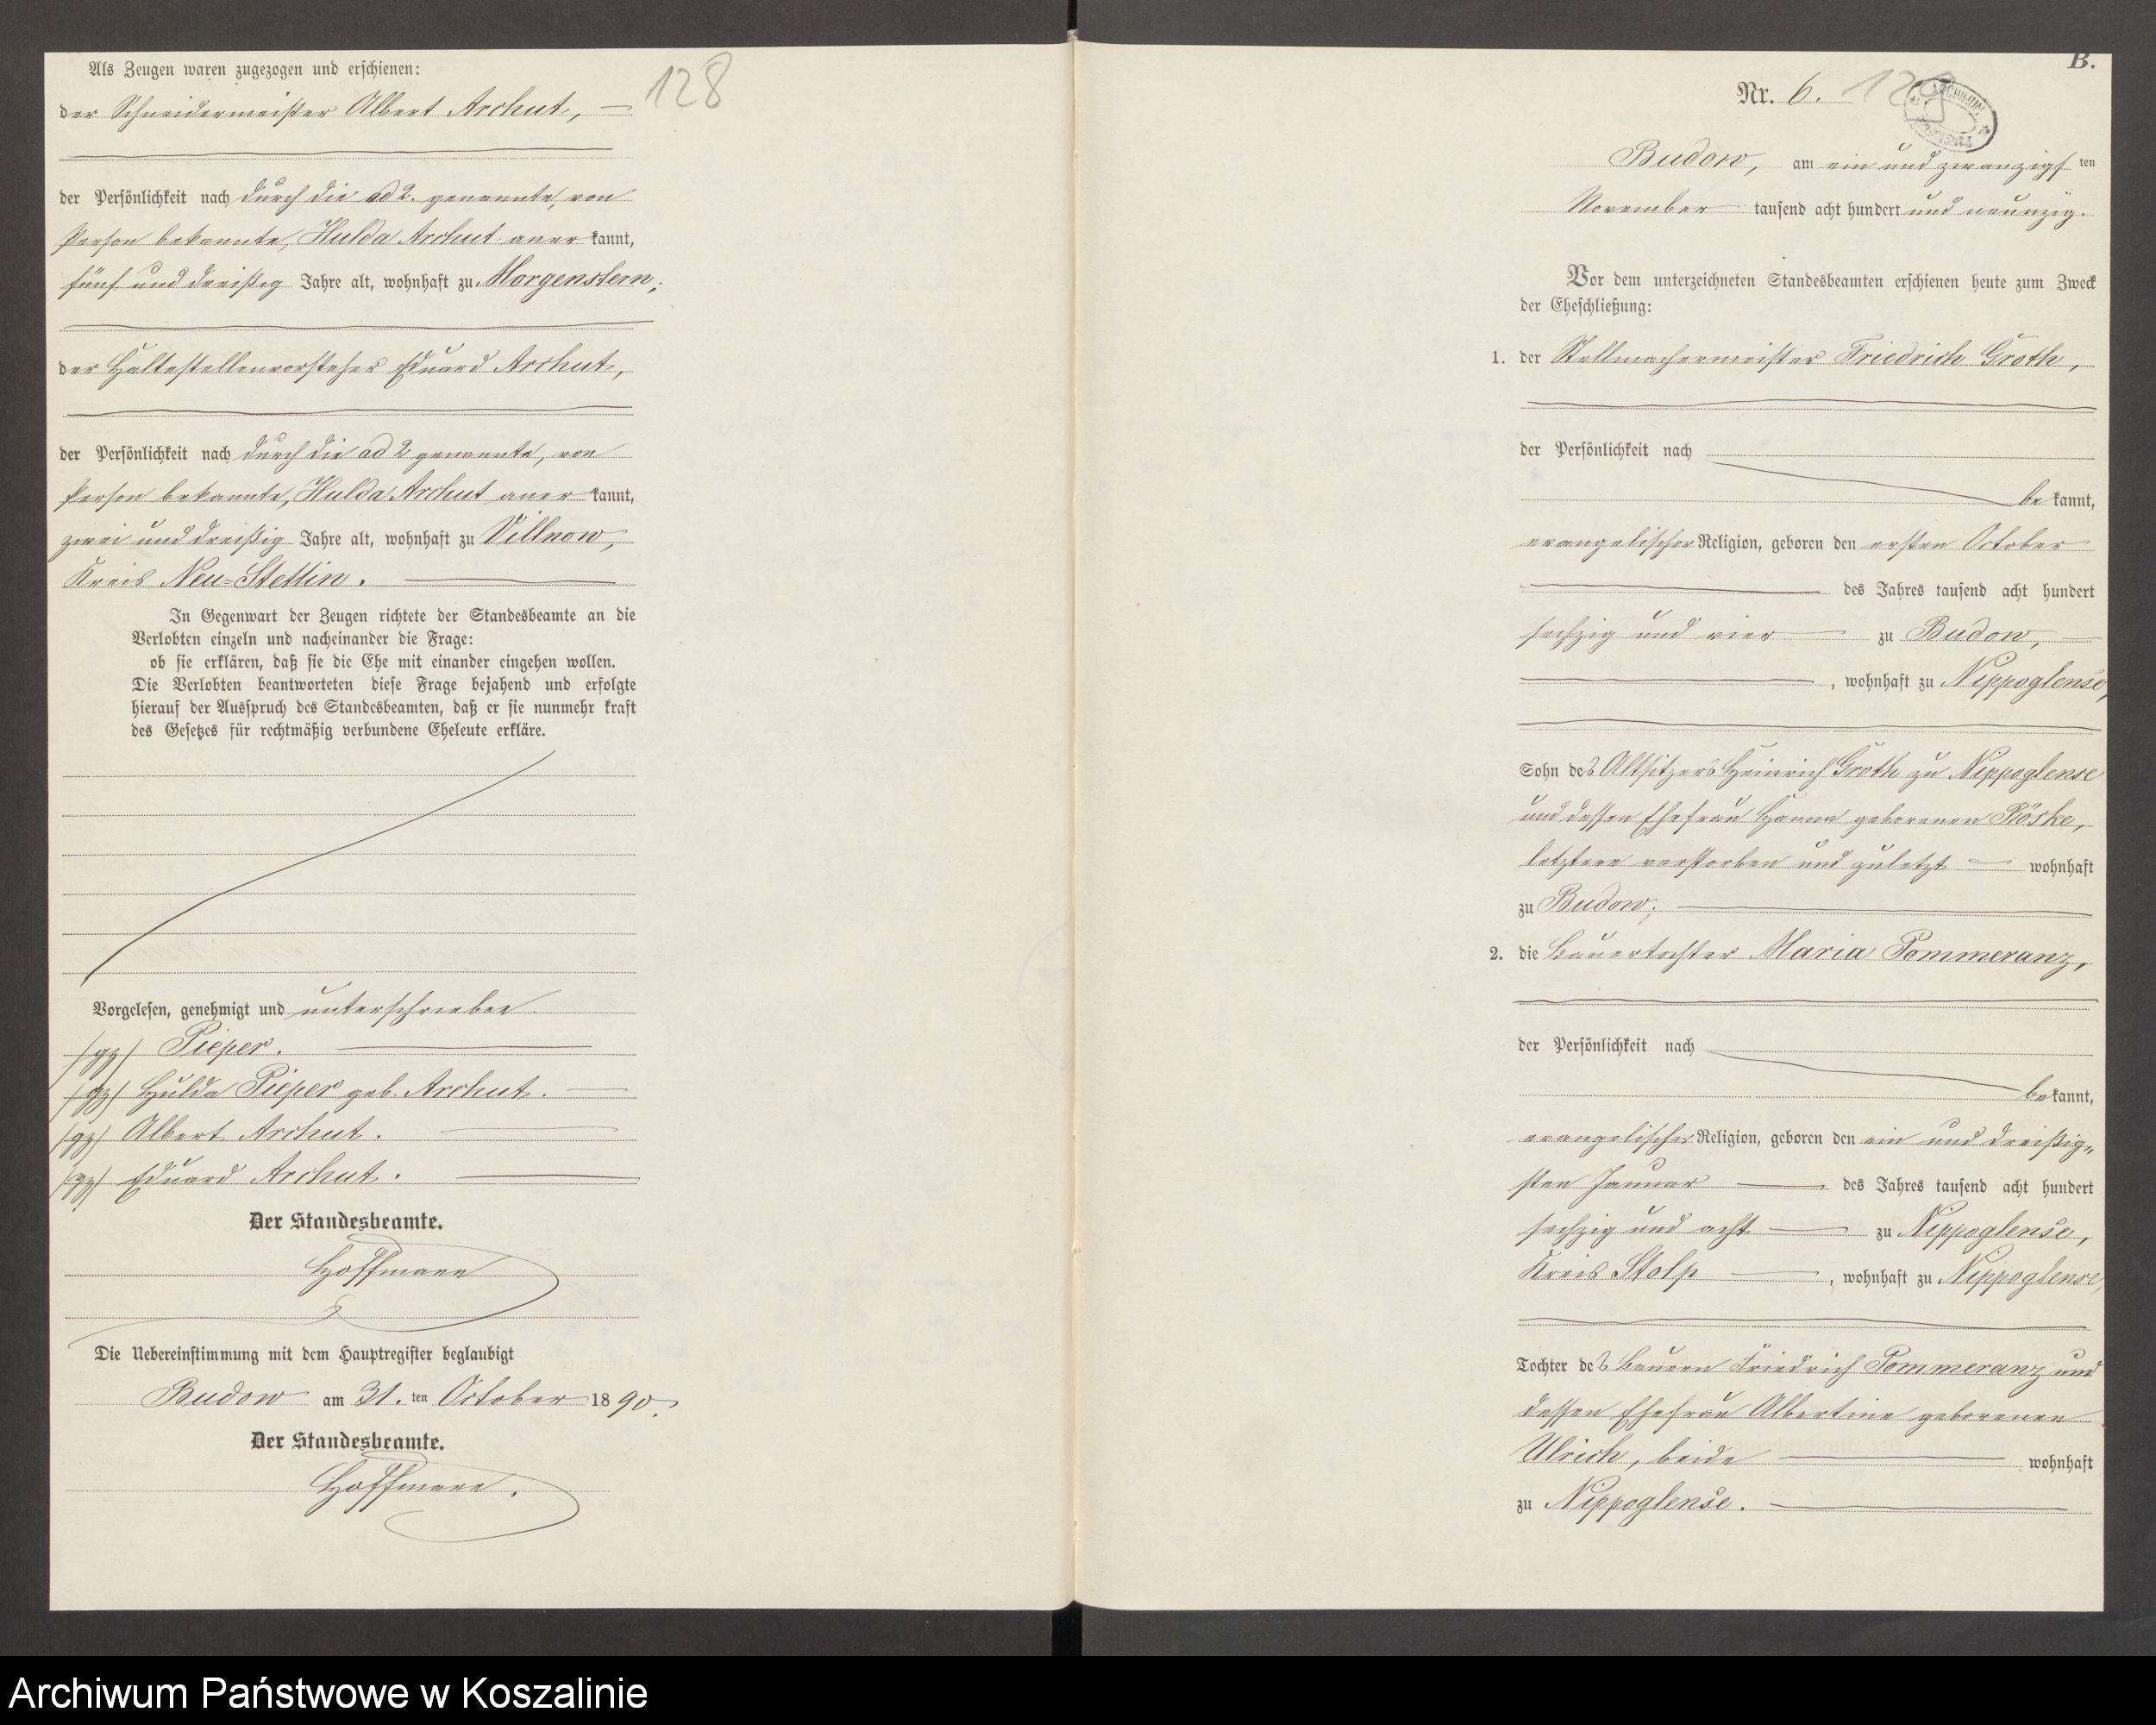 Als Zeugen waren zugezogen und erschienen:
128
der Schneidermeister Albert Archut,
der Persönlichkeit nach durch die ad 2. genannte, von
Person bekannte, Hulda Archut anerkannt,
fünf und dreißig Jahre alt, wohnhaft zu Morgenstern;
der Haltestellenvorsteher Eduard Archut,
der Persönlichkeit nach durch die ad 2 genannte, von
Person bekannte, Hulda Archut anerkannt,
zwei und dreißig Jahre alt, wohnhaft zu Villnow,
Kreis Neu-Stettin.
In Gegenwart der Zeugen richtete der Standesbeamte an die
Verlobten einzeln und nacheinander die Frage:
ob sie erklären, daß sie die Ehe mit einander eingehen wollen.
Die Verlobten beantworteten diese Frage bejahend und erfolgte
hierauf der Ausspruch des Standesbeamten, daß er sie nunmehr kraft
des Gesetzes für rechtmäßig verbundene Eheleute erkläre.
Vorgelesen, genehmigt und unterschrieben.
(gz) Pieper.
(gz) Hulda Pieper geb. Archut.
(gz) Albert Archut.
(gz) Eduard Archut.
Der Standesbeamte.
Hoffmann
Die Uebereinstimmung mit dem Hauptregister beglaubigt
Budow am 31. ten October 1890.
Der Standesbeamte.
Hoffmann.
B.
Nr. 6. 129
Budow, am ein und zwanzigsten
November tausend acht hundert und neunzig.
Vor dem unterzeichneten Standesbeamten erschienen heute zum Zweck
der Eheschließung:
1. der Stellmachermeister Friedrich Groth,
der Persönlichkeit nach
bekannt,
evangelischer Religion, geboren den ersten October
des Jahres tausend acht hundert
sechzig und vier zu Budow,
, wohnhaft zu Nippoglense,
Sohn des Altsitzers Heinrich Groth zu Nippoglense
und dessen Ehefrau Hanna geborenen Röske,
letztere verstorben und zuletzt wohnhaft
zu Budow;
2. die Bauertochter Maria Pommeranz,
der Persönlichkeit nach
bekannt,
evangelischer Religion, geboren den ein und dreißig-
sten Januar des Jahres tausend acht hundert
sechzig und acht zu Nippoglense,
Kreis Stolp, wohnhaft zu Nippoglense,
Tochter des Bauern Friedrich Pommeranz und
dessen Ehefrau Albertine geborenen
Ulrich, beide wohnhaft
zu Nippoglense.
Archiwum Państwowe w Koszalinie